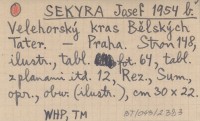 SEKYRA Josef 1954 b.
Velehorský kras Bělských
Tater. — Praha. Stran 148,
ilustr., tabl. fot. 64, tabl.
z planami itd. 12, Rez., Sum.,
opr., obw. (ilustr.), cm 30 x 22.
WHP, TM